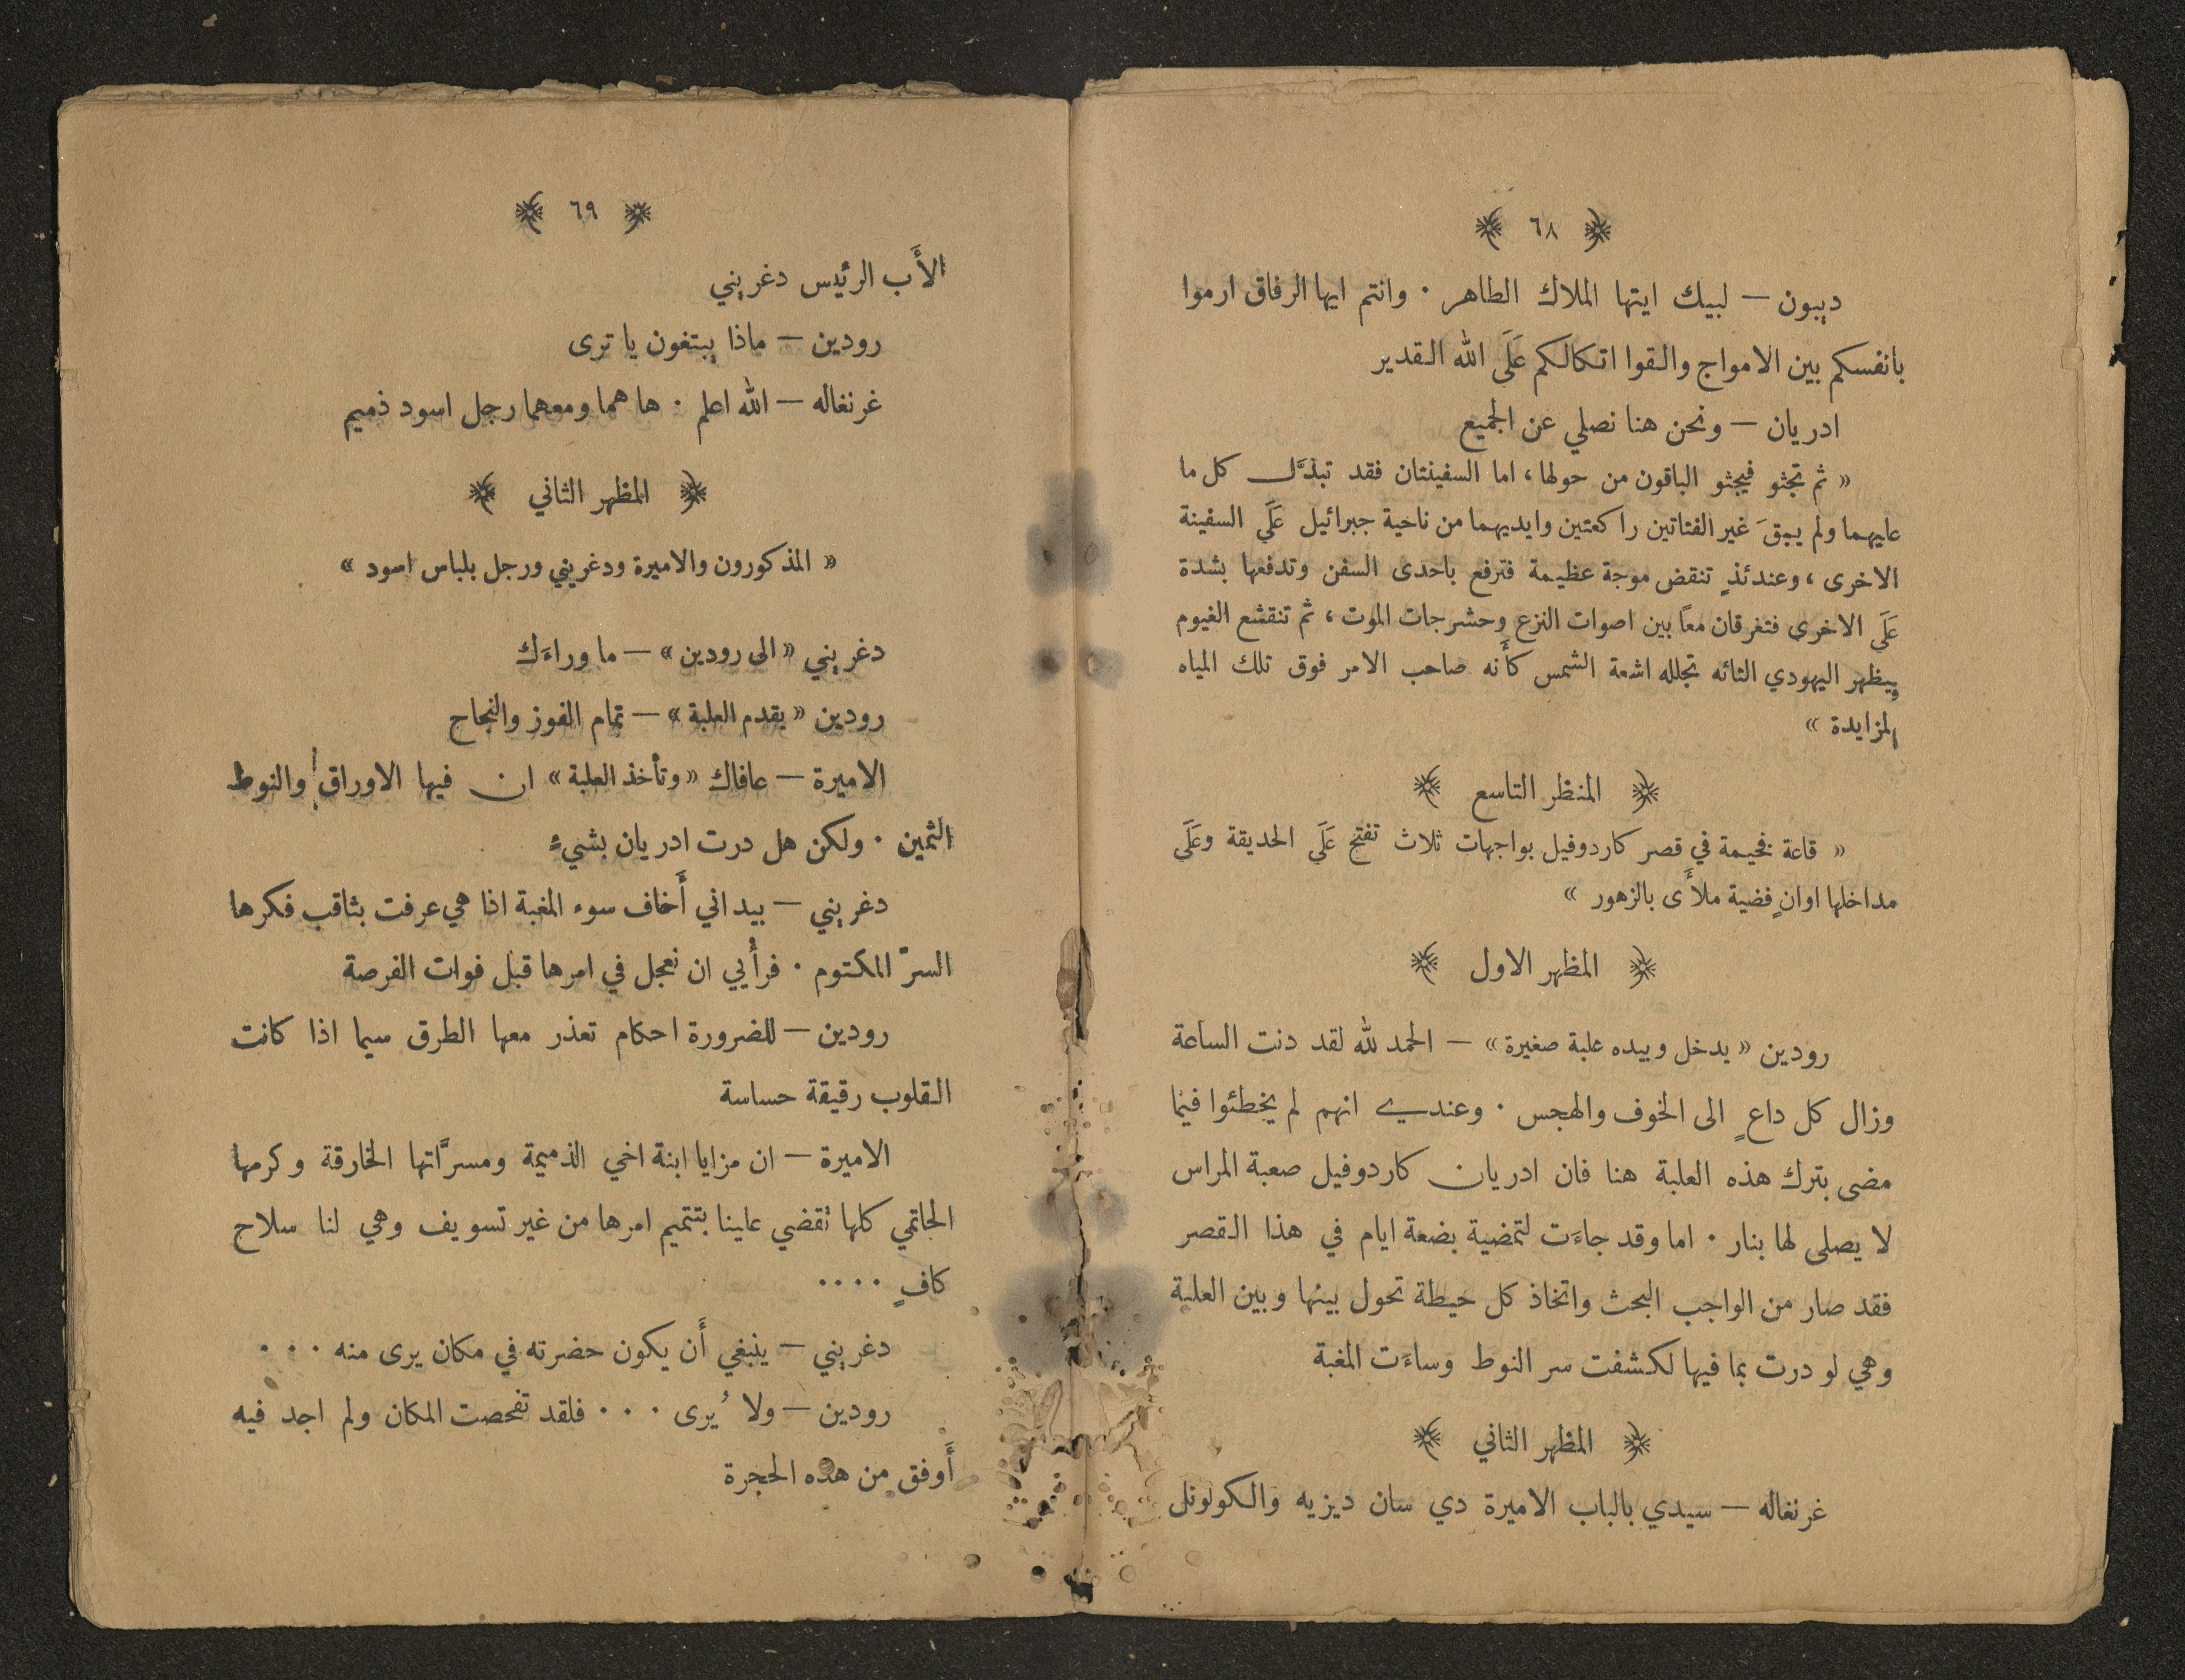 ﴿ ٦٨ ﴾
ديبون — لبيك ايتها الملاك الطاهر ٠ وانتم ايها الرفاق ارموا
بانفسكم بين الامواج والقوا اتكالكم عَلَى الله القدير
ادريان — ونحن هنا نصلي عن الجميع
« ثم تجثو فيجثو الباقون من حولها، اما السفينتان فقد تبدَّل كل ما
عليهما ولم يبقَ غير الفتاتين راكعتين وايديهما من ناحية جبرائيل عَلَى السفينة
الاخرى، وعندئذٍ تنقض موجة عظيمة فترفع باحدى السفن وتدفعها بشدة
عَلَى الاخرى فتغرقان معاً بين اصوات النزع وحشرجات الموت، ثم تنقشع الغيوم
ويظهر اليهودي التائه تجلله اشعة الشمس كأَنه صاحب الامر فوق تلك المياه
المزايدة »
﴿ المنظر التاسع ﴾
« قاعة فخيمة في قصر كاردوفيل بواجهات ثلاث تفتح عَلَى الحديقة وعَلَى
مداخلها اوانٍ فضية ملأَى بالزهور »
﴿ المظهر الاول ﴾
رودين « يدخل وبيده علبة صغيرة » — الحمد لله لقد دنت الساعة
وزال كل داعٍ الى الخوف والهجس ٠ وعندي انهم لم يخطئوا فيما
مضى بترك هذه العلبة هنا فان ادريان كاردوفيل صعبة المراس
لا يصلى لها بنار ٠ اما وقد جاءَت لتمضية بضعة ايام في هذا القصر
فقد صار من الواجب البحث واتخاذ كل حيطة تحول بينها وبين العلبة
وهي لو درت بما فيها لكشفت سر النوط وساءَت المغبة
﴿ المظهر الثاني ﴾
غرنغاله — سيدي بالباب الاميرة دي سان ديزيه والكولونل
﴿ ٦٩ ﴾
الأَب الرئيس دغريني
رودين — ماذا يبتغون يا ترى
غرنغاله — الله اعلم ٠ ها هما ومعهما رجل اسود ذميم
﴿ المظهر الثاني ﴾
« المذكورون والاميرة ودغريني ورجل بلباس اسود »
دغريني « الى رودين » — ما وراءَك
رودين « يقدم العلبة » — تمام الفوز والنجاح
الاميرة — عافاك « وتأخذ العلبة » ان فيها الاوراق والنوط
الثمين ٠ ولكن هل درت ادريان بشيءٍ
دغريني — بيد اني أَخاف سوء المغبة اذا هي عرفت بثاقب فكرها
السرّ المكتوم ٠ فرأْيي ان نعجل في امرها قبل فوات الفرصة
رودين — للضرورة احكام تعذر معها الطرق سيما اذا كانت
القلوب رقيقة حساسة
الاميرة — ان مزايا ابنة اخي الذميمة ومسرَّاتها الخارقة وكرمها
الحاتمي كلها تقضي علينا بتتميم امرها من غير تسويف وهي لنا سلاح
كافٍ ٠٠٠٠
دغريني — ينبغي أَن يكون حضرته في مكان يرى منه ٠٠٠
رودين — ولا يُرى ٠٠٠ فلقد تفحصت المكان ولم اجد فيه
أَوفق من هذه الحجرة